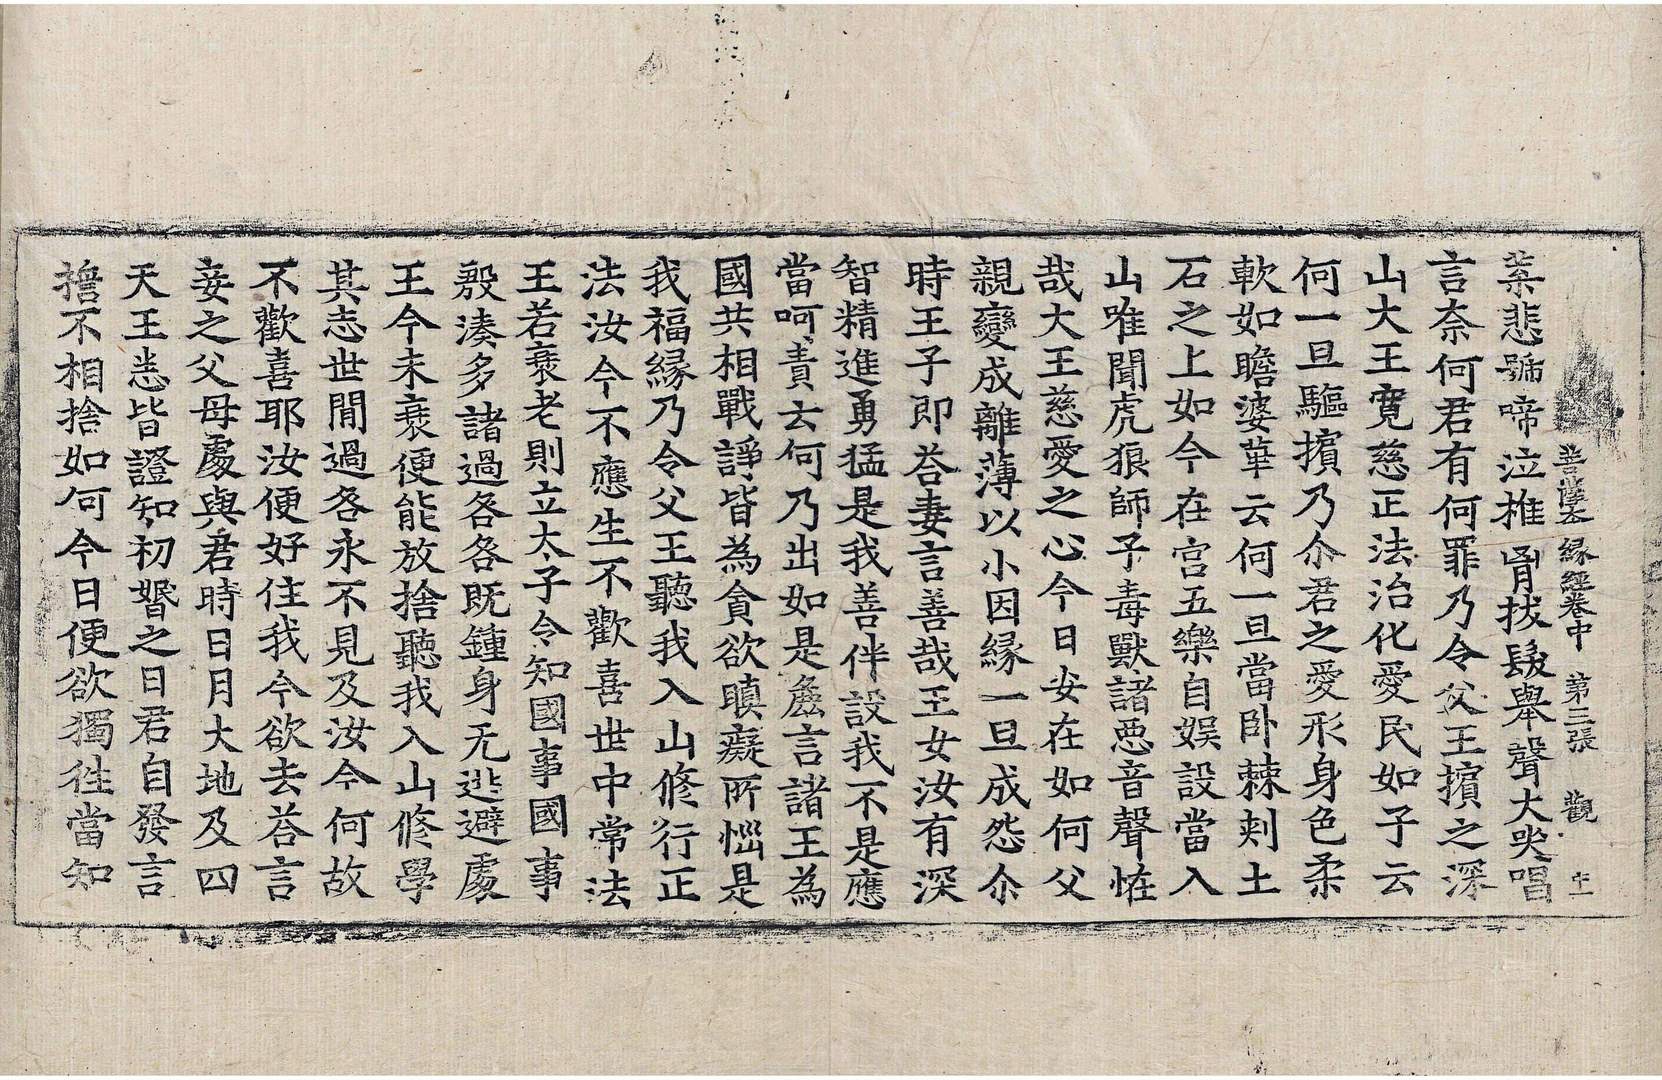 菩薩本縁經卷中 第三張 觀
葉悲號啼泣推胷拔髮舉聲大哭唱
言奈何君有何罪乃令父王擯之深
山大王寬慈正法治化愛民如子云
何一旦驅擯乃尒君之愛形身色柔
軟如瞻婆華云何一旦當卧棘刺土
石之上如今在宫五樂自娱設當入
山唯聞虎狼師子毒獸諸惡音聲恠
哉大王慈愛之心今日安在如何父
親變成離薄以小因縁一旦成怨尒
時王子即荅妻言善哉王女汝有深
智精進勇猛是我善伴設我不是應
當呵責云何乃出如是麁言諸王為
國共相戰諍皆為貪欲瞋癡所惱是
我福縁乃令父王聽我入山修行正
法汝今不應生不歡喜世中常法
王若衰老則立太子令知國事國事
殷湊多諸過咎咎既鍾身无逃避處
王今未衰便能放捨聽我入山修學
其志世間過咎永不見及汝今何故
不歡喜耶汝便好住我今欲去荅言
妾之父母處與君時日月大地及四
天王悉皆證知初婚之日君自發言
擔不相捨如何今日便欲獨往當知